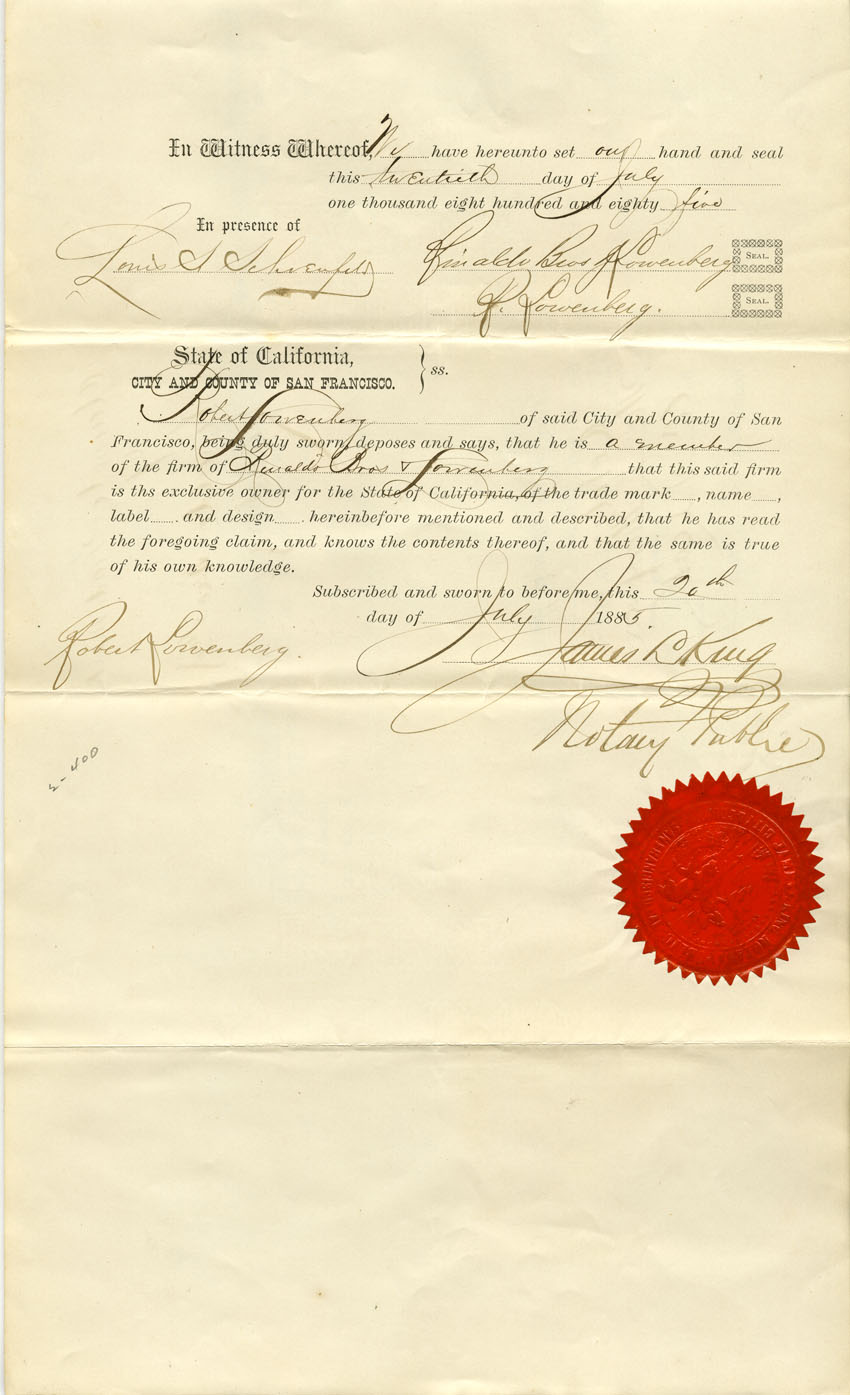 In Witness Whereof, We have hereunto set our hand and seal
this twentieth day of July
one thousand eight hundred and eighty five
In presence of
Louis S Schoenfeld Rinaldo Bros & Lowenberg SEAL.
R. Lowenberg. SEAL.
State of California,
CITY AND COUNTY OF SAN FRANCISCO. } ss.
Robert Lowenberg of said City and County of San
Francisco, being duly sworn, deposes and says, that he is a member
of the firm of Rinaldo Bros & Lowenberg that this said firm
is ths exclusive owner for the State of California, of the trade mark, name,
label and design hereinbefore mentioned and described, that he has read
the foregoing claim, and knows the contents thereof, and that the same is true
of his own knowledge.
Subscribed and sworn to before me, this 20th
day of July 1885.
Robert Lowenberg. James L King
Notary Public
2-400